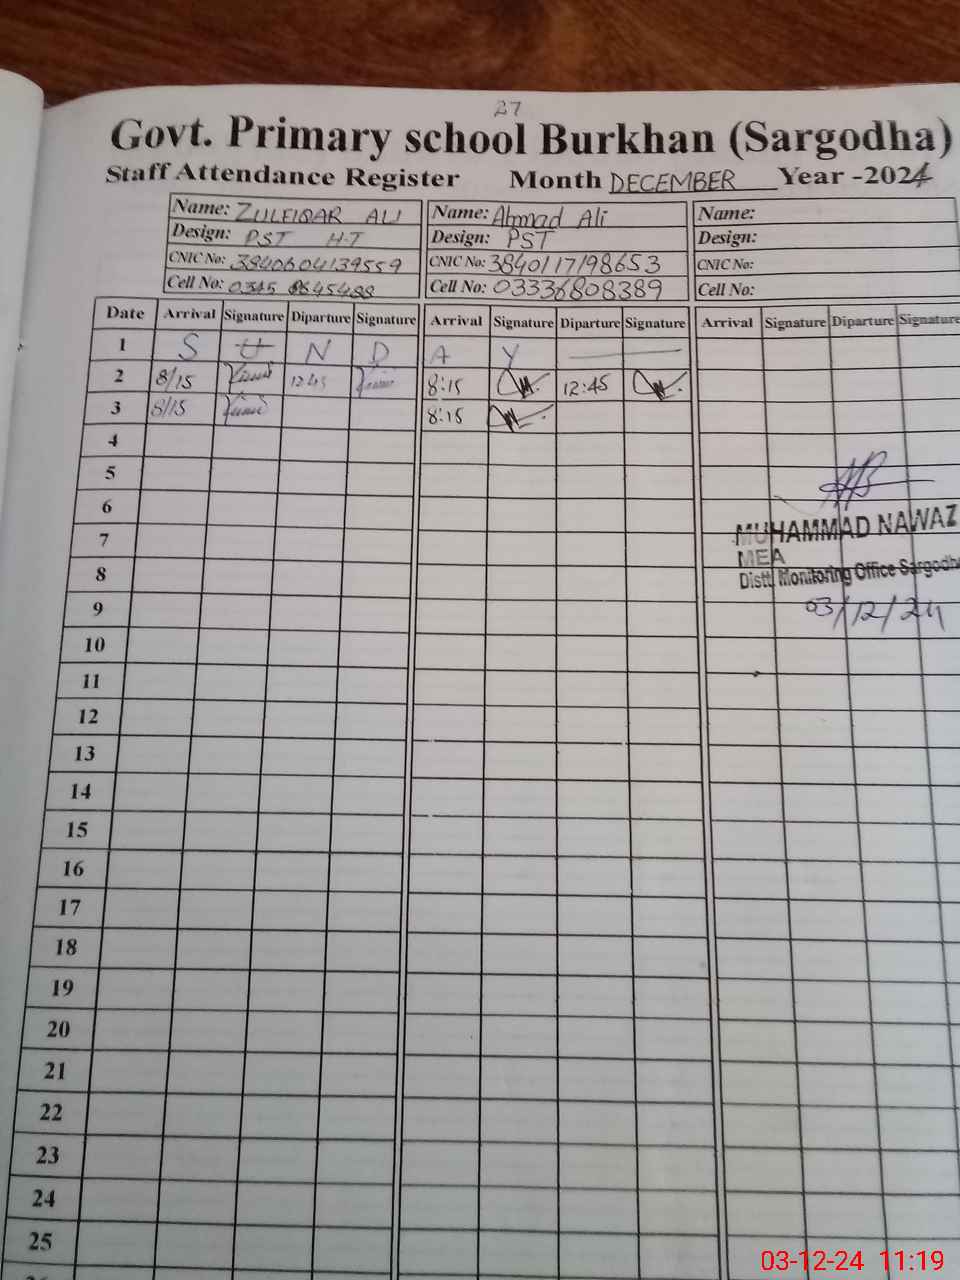 27
Govt. Primary school Burkhan (Sargodha)
Staff Attendance Register Month DECEMBER Year -2024
Name: ZULFIQAR ALI Name: Ahmad Ali Name:
Design: PST H-T Design: PST Design:
CNIC No: 3840604139559 CNIC No: 3840117198653 CNIC No:
Cell No: 0345 Cell No: 03336808389 Cell No:
Date Arrival Signature Diparture Signature Arrival Signature Diparture Signature Arrival Signature Diparture Signature
1 S U N D A Y
2 8/15 12:45 8:15 12:45
3 8/15 8:15
4
5
6
7
8
9
10
11
12
13
14
15
16
17
18
19
20
21
22
23
24
25
MUHAMMAD NAWAZ
MEA
Distt. Monitoring Office Sargodha
03/12/24
03-12-24 11:19